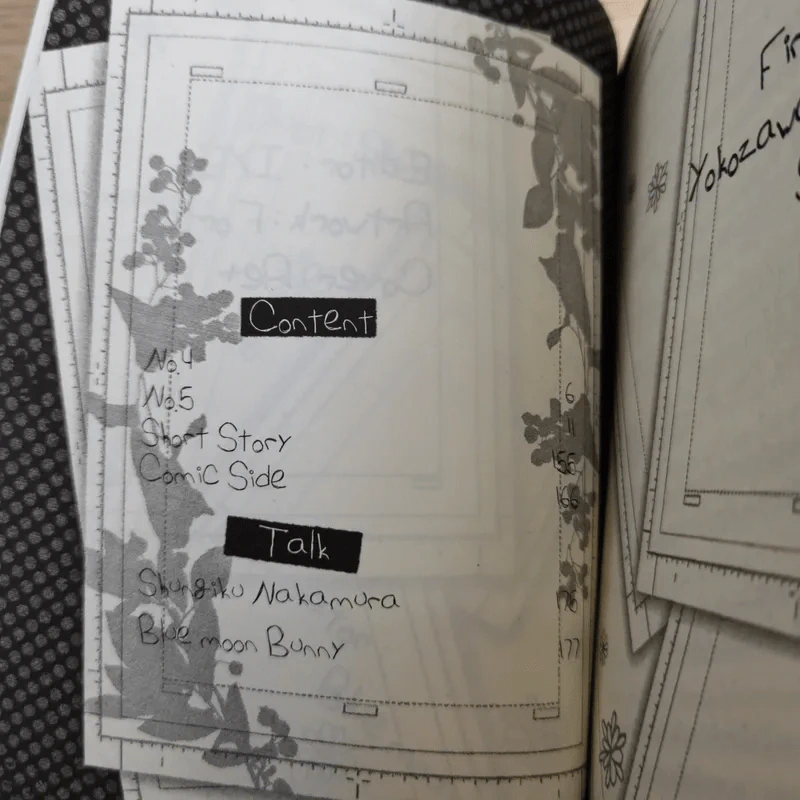 Content
No.4 6
No.5 11
Short Story 155
Comic Side 166
Talk
Shungiku Nakamura 176
Blue moon Bunny 177
Fir
Yokozawa